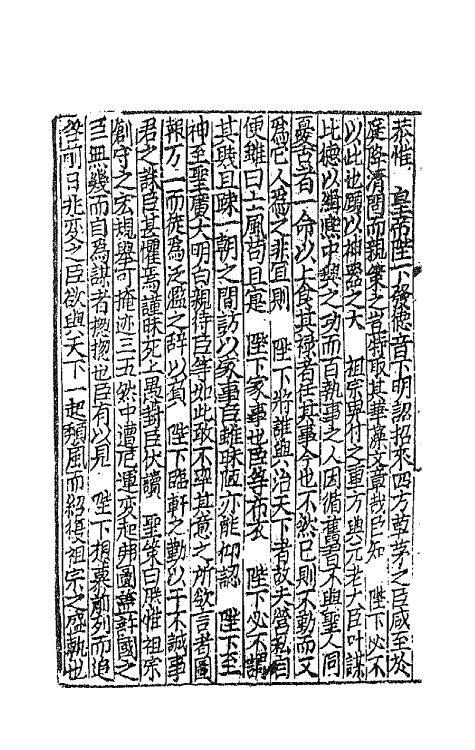 恭惟　皇帝陛下發德音下明詔招來四方草茅之臣咸至於
庭除清閒而親策之豈特取其華藻文章哉臣知　陛下必不
以此也願以神器之大　祖宗畀付之重方與元老大臣叶謀
比德以緝熙中興之功而百執事之人因循舊習不與聖人同
憂古者一命以上食其祿者居其事今也不然已則不勤而又
爲它人爲之非宜則　陛下將誰與共治天下者故夫營私自
便雖曰士風苟且寔　陛下家事也臣等布衣　陛下必不謂
其賤且疎一朝之間訪以家事臣雖昧恆亦能仰認　陛下至
神至聖廣大明白親待臣等如此敢不率其意之所欲言者圖
報万一而徒爲泛濫之辭以負　陛下臨軒之勤以干不誠事
君之誅臣甚懼焉謹昧死上愚對臣伏讀　聖策曰朕惟祖宗
創守之宏規舉可掩迹三五然中遭厄運變起弗圖論許國之
臣無幾而自爲謀者揔揔也臣有以見　陛下想慕前列而追
咎前日非常之臣欲與天下一起頹風而紹復祖宗之盛執也